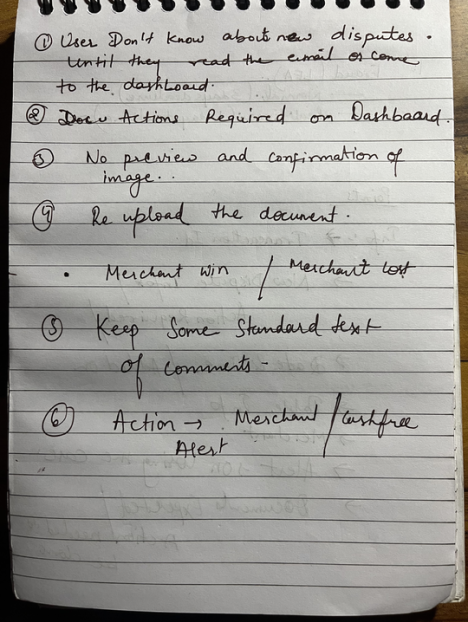 ① User Don't know about new disputes.
until they read the email or come
to the dashboard.
② Actions Required on Dashboard.
③ No preview and confirmation of
image..
④ Re upload the document.
• Merchant win / Merchant lost
⑤ Keep Some Standard text
of comments -
⑥ Action → Merchant / Cashfree
Alert